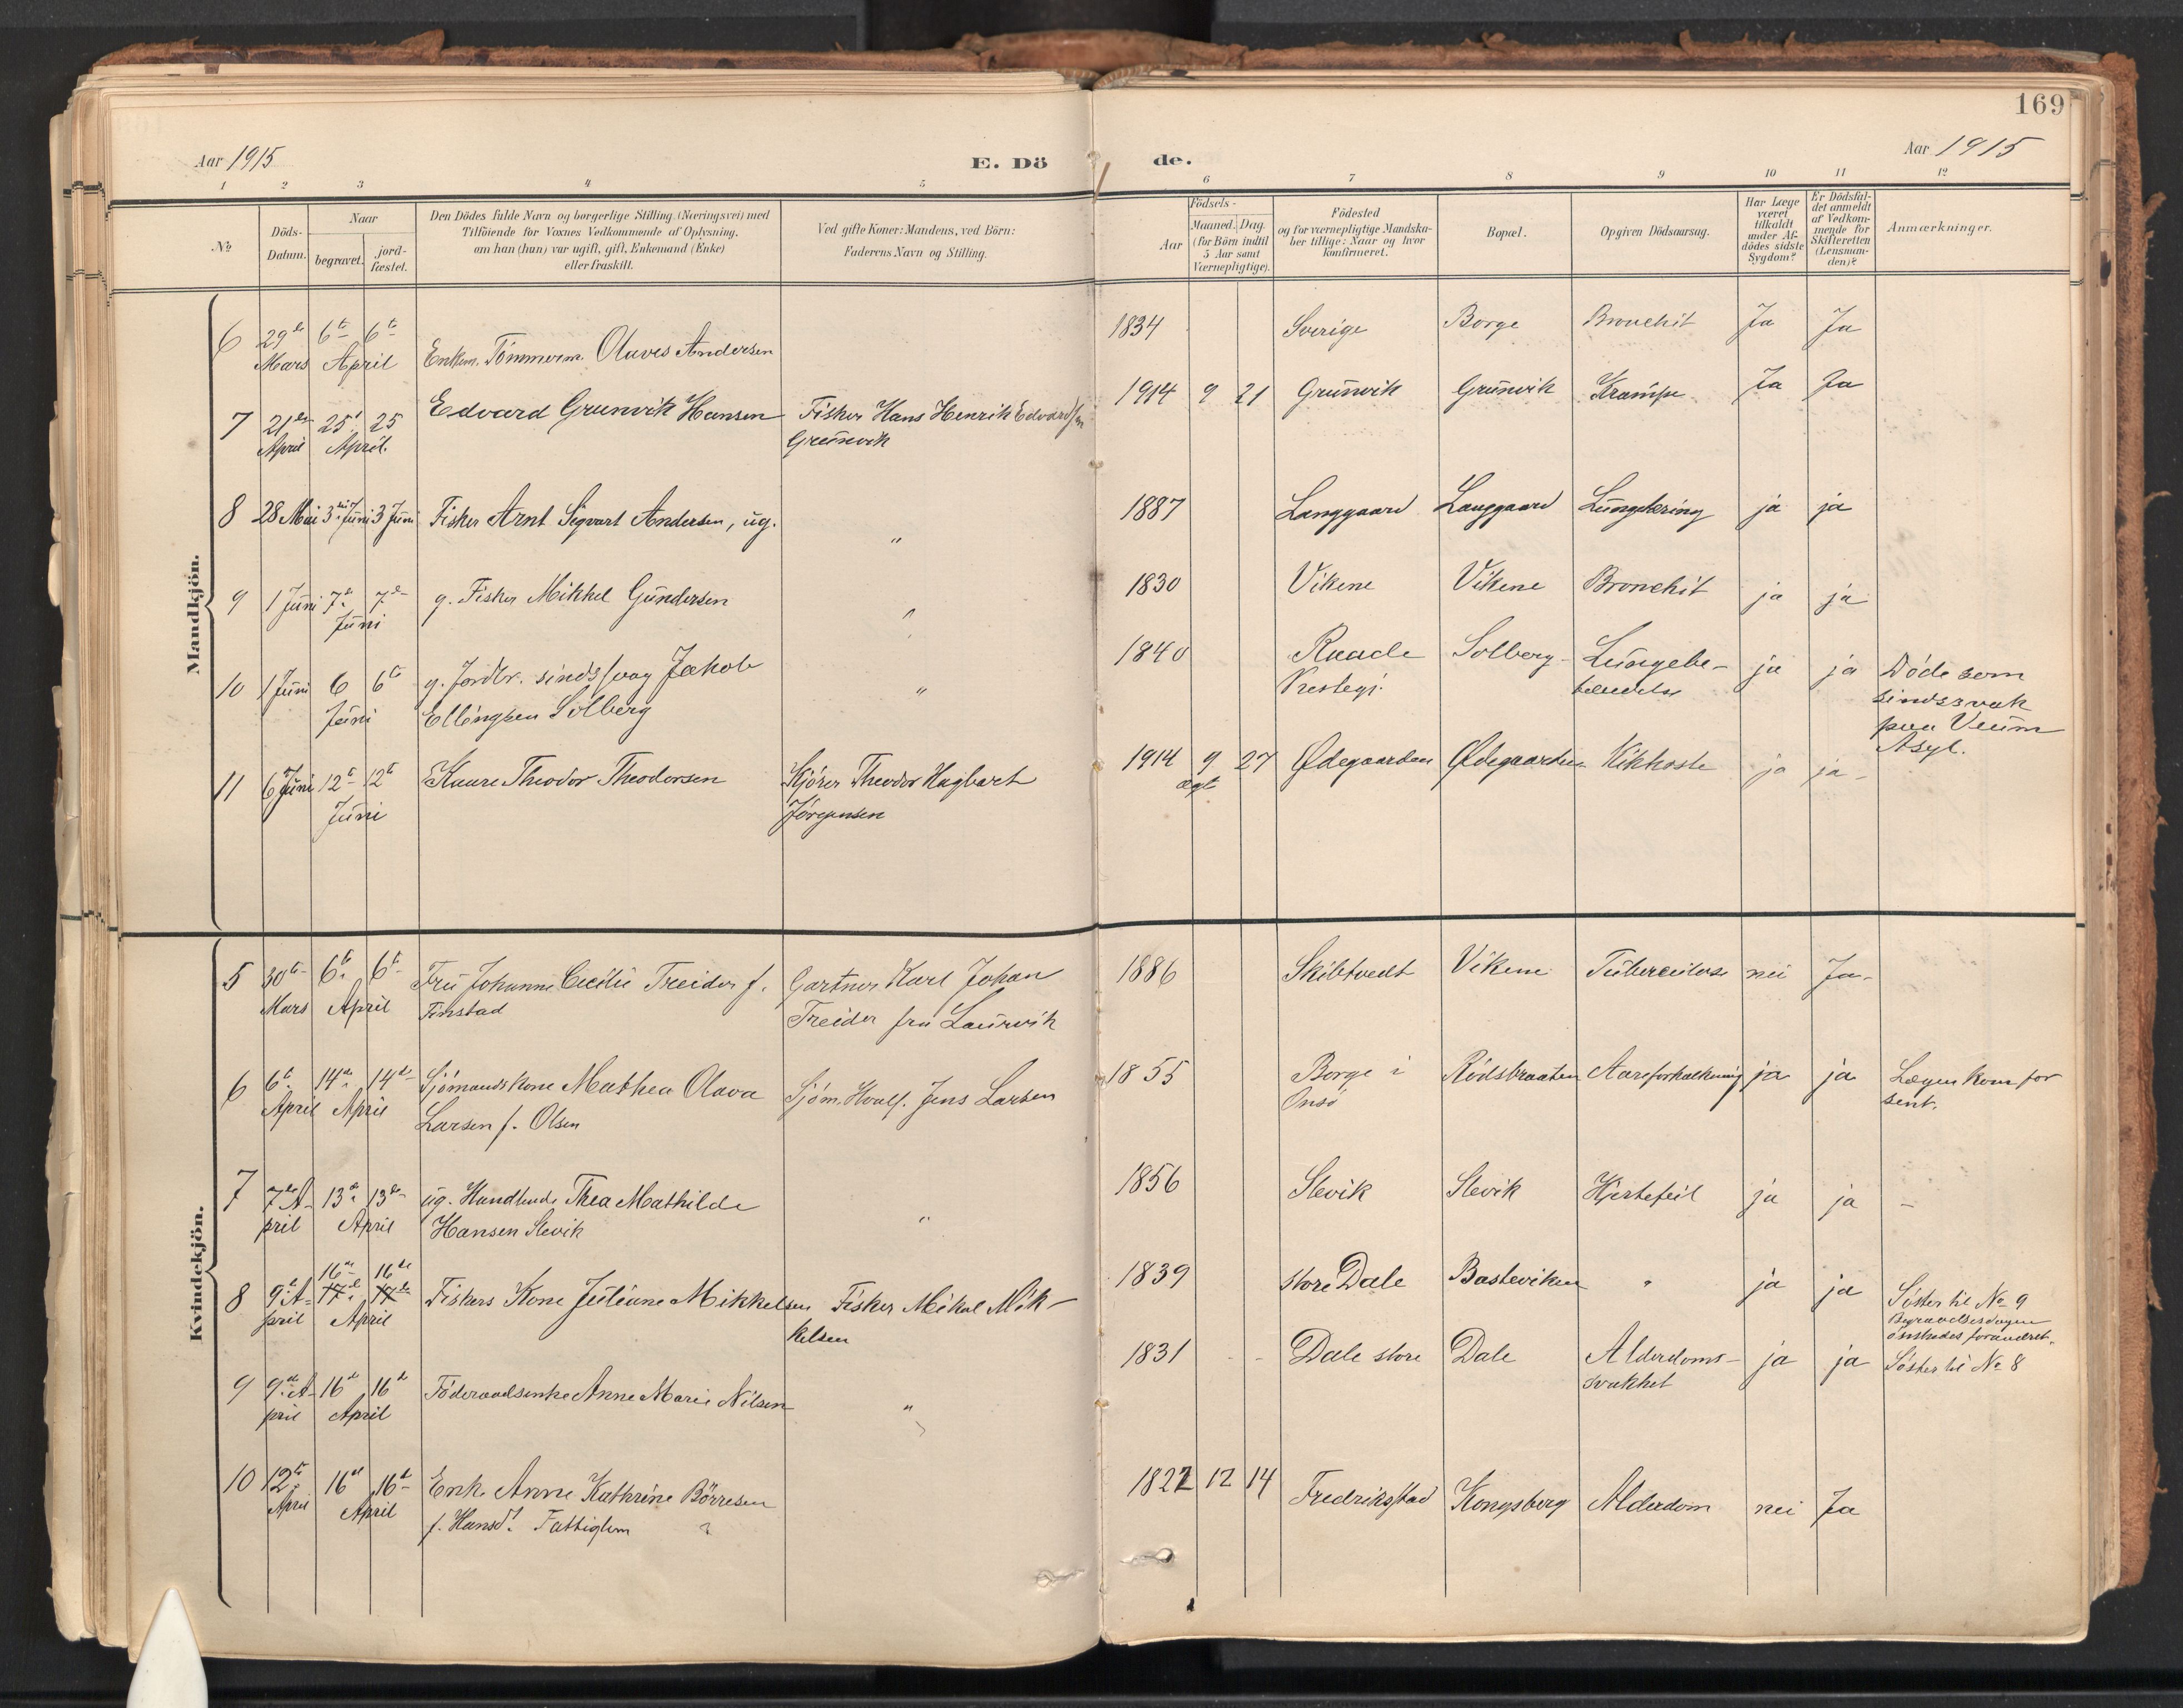 169
Aar 1915
E. Dö
de.
Aar 1915
1 2 3 4 5 6 7 8 9 10 11 12
No
Döds-
Datum.
Naar
begravet.
jord-
fæstet.
Den Dödes fulde Navn og borgerlige Stilling (Næringsvei) med
Tilföiende for Voxnes Vedkommende af Oplysning,
om han (hun) var ugift, gift, Enkemand (Enke)
eller fraskilt.
Ved gifte Koner: Mandens, ved Börn:
Faderens Navn og Stilling.
Födsels-
Aar
Maaned. Dag.
(for Börn indtil
5 Aar samt
Værnepligtige).
Födested
og for værnepligtige Mandska-
ber tillige: Naar og hvor
konfirmeret.
Bopæl.
Opgiven Dödsaarsag.
Har Læge
været
tilkaldt
under Af-
dödes sidste
Sygdom?
Er Dödsfal-
det anmeldt
af Vedkom-
mende for
Skifteretten
(Lensman-
den)?
Anmærkninger.
Mandkjön.
6 29de Mars 6te 6te April Enkem. Tömmerm. Olaves Andersen 1834 Sverige Borge Bronchit Ja Ja
7 21de April 25 25 April. Edvard Grunvik Hansen Fisker Hans Henrik Edvards/n
Grünvik
1914 9 21 Grünvik Grünvik Krampe Ja Ja
8 28 Mai 3die Juni 3 Juni Fisker Arnt Sigvart Andersen, ug. " 1887 Langgaard Langgaard Lungetæring ja ja
9 1 Juni 7de 7de Juni g. Fisker Mikkel Gundersen " 1830 Vikene Vikene Bronchit ja ja
10 1 Juni 6 6te Juni g. Jordbr. sindssvag Jakob
Ellingsen Solberg
" 1840 Raade
Prestegj.
Solberg Lungebe-
tændelse
ja ja Döde som
sindssvak
paa Veum
Asyl.
11 6 Juni 12te 12te Juni Kaare Theodor Theodorsen Kjörer Theodor Hagbart
Jörgensen
1914 9 27 Ødegaarden Ødegaarden Kikhoste ja ja
ægt
Kvindekjön.
5 30te Mars 6te 6te April Fru Johanne Cecilie Treider f.
Finstad
Gartner Karl Johan
Treider fra Laurvik
1886 Skibtvedt Vikene Tuberculose nei Ja
6 6te April 14de 14de April Sjömands Kone Mathea Olava
Larsen f. Olsen
Sjöm. Hvalf. Jens Larsen
1855 Borge i
Onsö
Rödsbraaten Aareforkalkning ja ja Lægen kom for
sent.
7 7de April 13de 13de April ug. Handlende Thea Mathilde
Hansen Slevik
" 1856 Slevik Slevik Hjertefeil ja ja –
8 9de April 16de 16de
17de 17de April Fiskers Kone Juliane Mikkelsen Fisker Mikal Mik-
kelsen
1839 store Dale Basteviken " ja ja Söster til No 9
Begravelsesdagen
önskedes forandret.
9 9de April 16de 16de April Föderaadsenke Anne Marie Nilsen " 1831 - - Dale store Dale Alderdoms-
svakhet
ja ja Söster til No 8
10 12te April 16de 16de April Enk. Anne Kathrine Börresen
f. Hansd. Fattiglem
1822 12 14 Fredrikstad Kongsberg Alderdom nei Ja